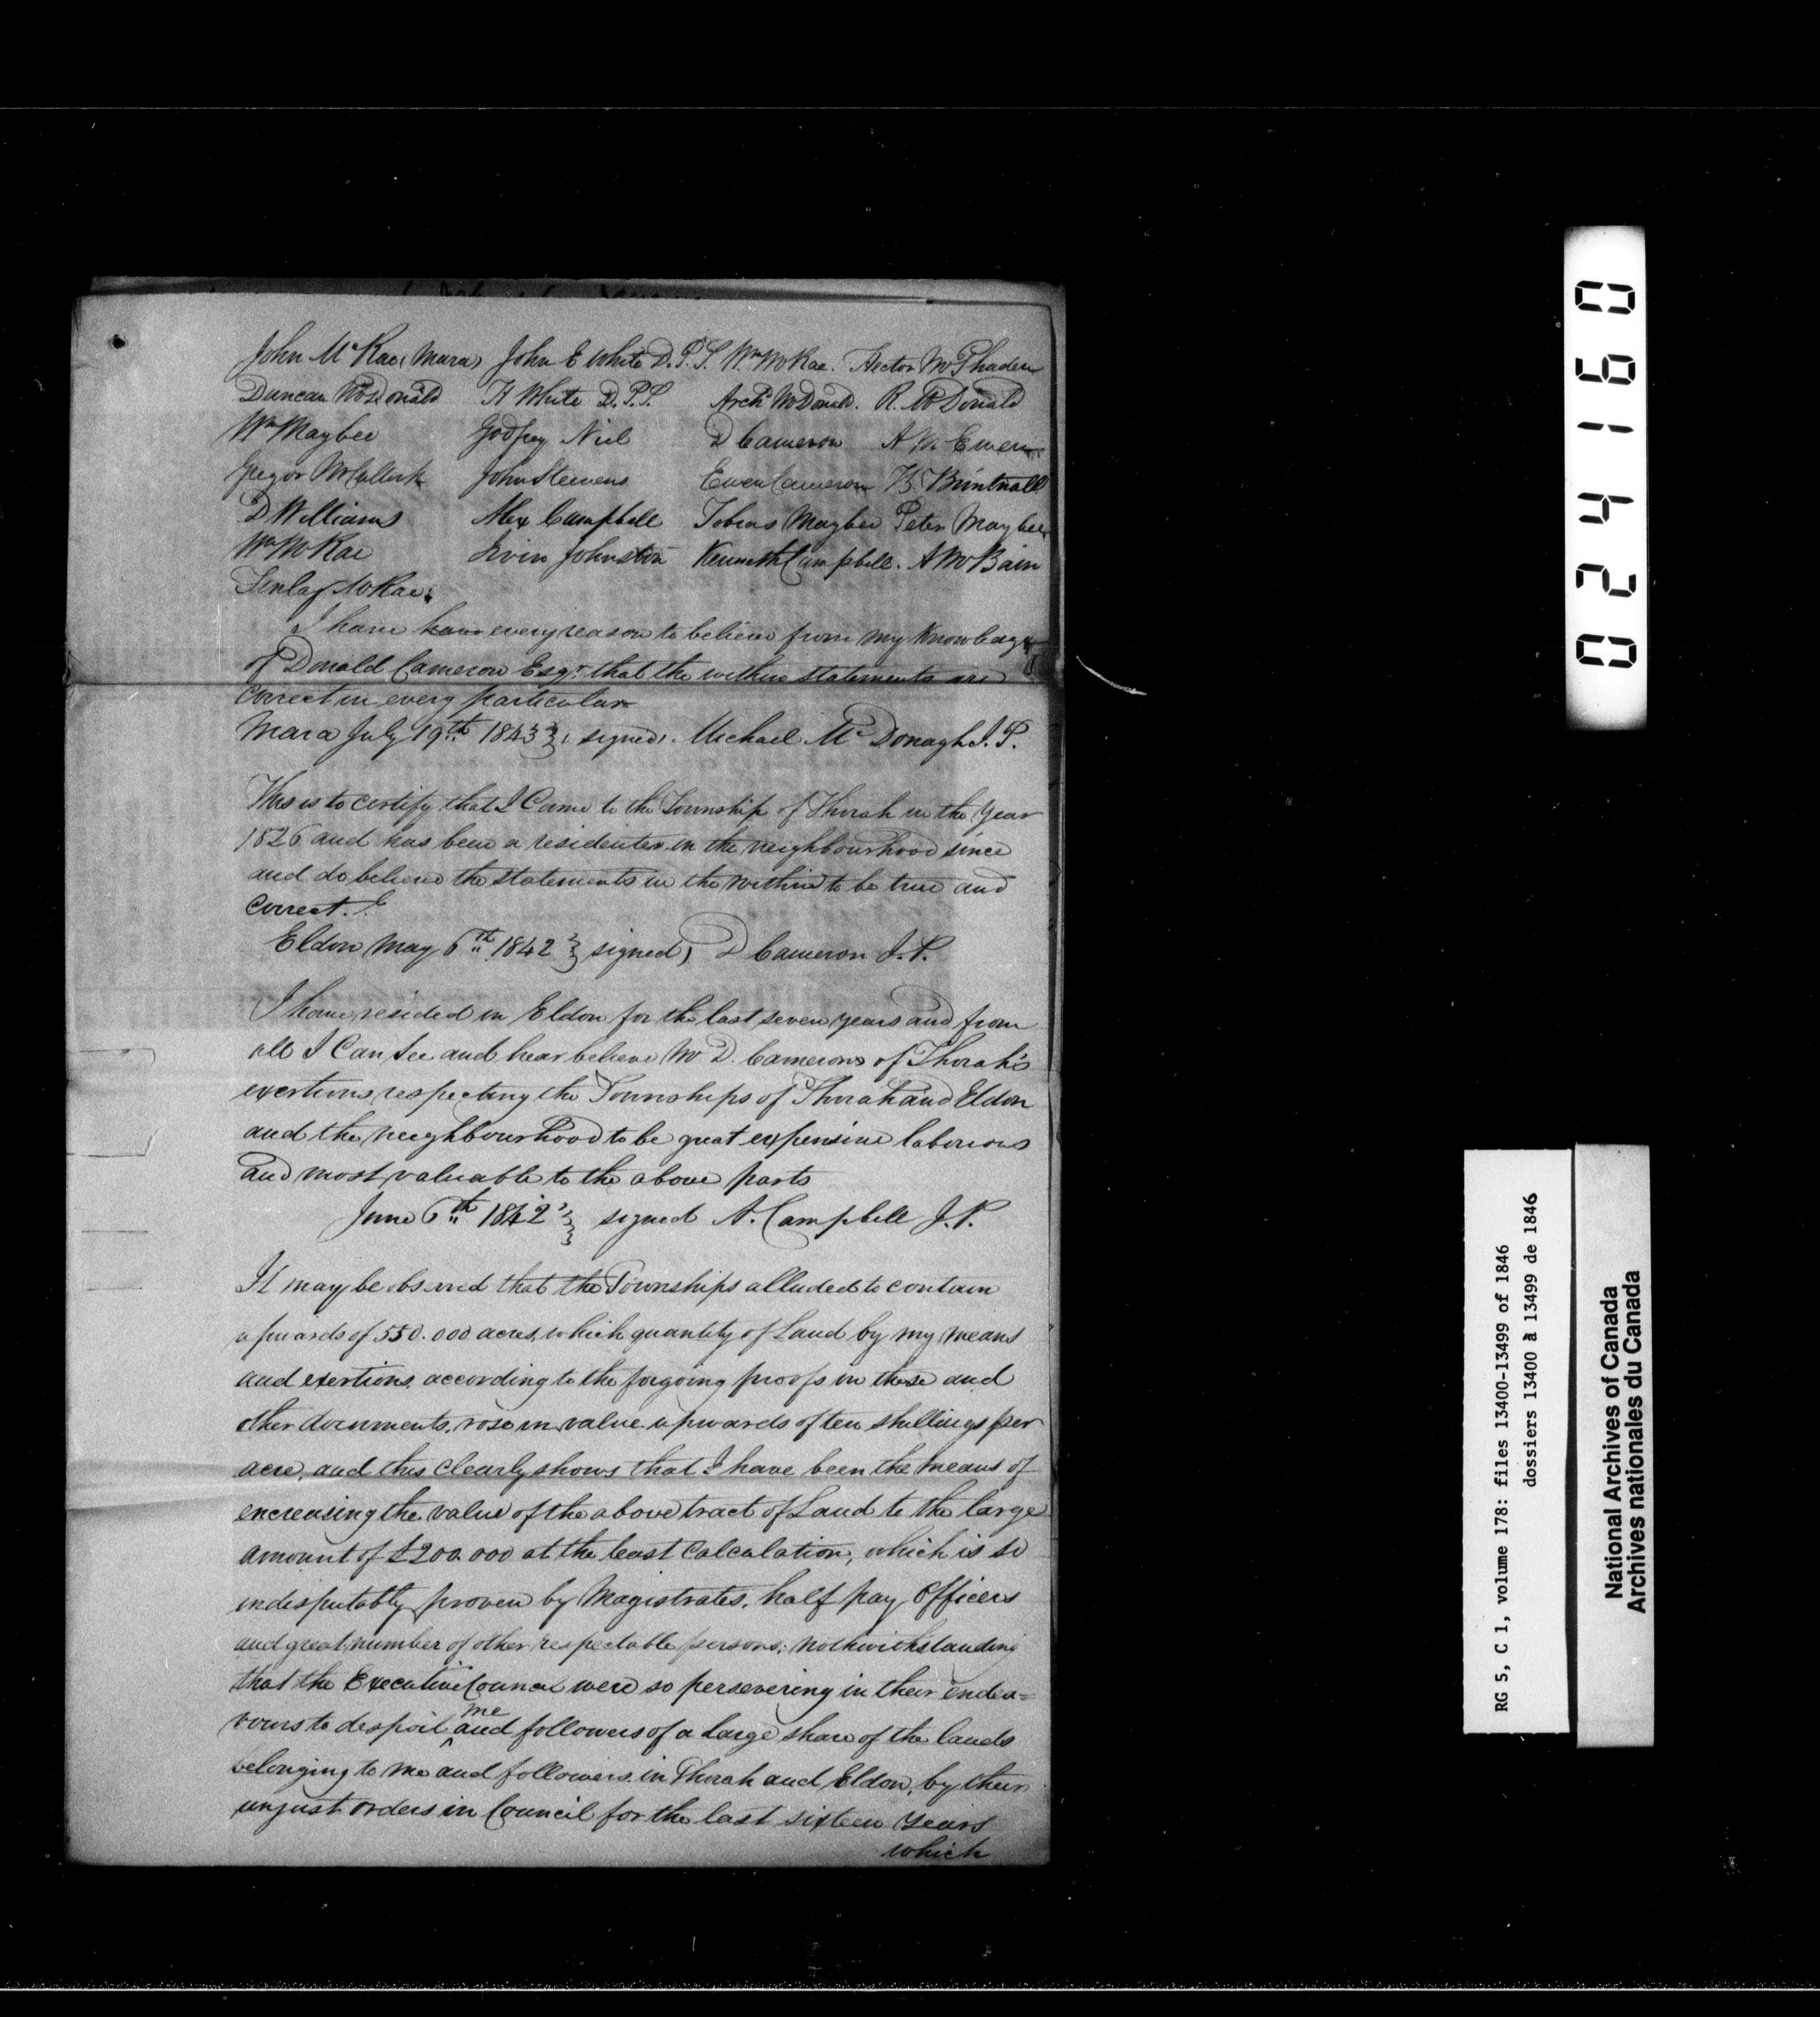 John McRae (Mara) John E White D.P.S. Wm McRae. Hector McPhaden
Duncan McDonald H White D.P.S. Archd McDonald. R. McDonald
Wm Maybee Godfrey Niel D Cameron A Mc Ewen
Gregor McCulloch John Stevens Ewen Cameron H. Brintnall
D Williams Alex Campbell Tobias Maybee Peter Maybee
Wm McRae Irvin Johnston Kenneth Campbell. A McBain
Finlay McRae.
I have have every reason to believe from my knowledge
of Donald Cameron Esqr. that the within statements are
correct in every particular
Mara July 19th 1843 } signed. Michael McDonagh J.P.
This is to certify that I Came to the Township of Thorah in the Year
1826 and has been a residenter in the neighbourhood since
and do believe the statements in the within to be true and
Correct.
Eldon May 6th 1842 } signed) D Cameron J.P.
I have resided in Eldon for the last seven years and from
all I Can See and hear believe Mr D. Camerons of Thorah's
exertions respecting the Townships of Thorah and Eldon
and the neighbourhood to be great expensive laborious
and most valuable to the above parts
June 6th 1842 } signed A. Campbell J.P.
It may be observed that the Townships alluded to contain
upwards of 550.000 acres, which quantity of Land by my means
and exertions, according to the forgoing proofs in these and
other documents, rose in value upwards of ten shillings per
acre, and this clearly shows that I have been the means of
encreasing the value of the above tract of Land to the large
amount of £200.000 at the least Calculation, which is so
indisputably proven by Magistrates, half pay Officers
and great number of other respectable persons; nothwithstanding
that the Executive Council were so persevering in their endea=
vours to despoil me and followers of a large share of the lands
belonging to me and followers in Thorah and Eldon, by their
unjust orders in Council for the last sixteen years
which
024160
RG 5, C 1, volume 178: files 13400-13499 of 1846
dossiers 13400 à 13499 de 1846
National Archives of Canada
Archives nationales du Canada